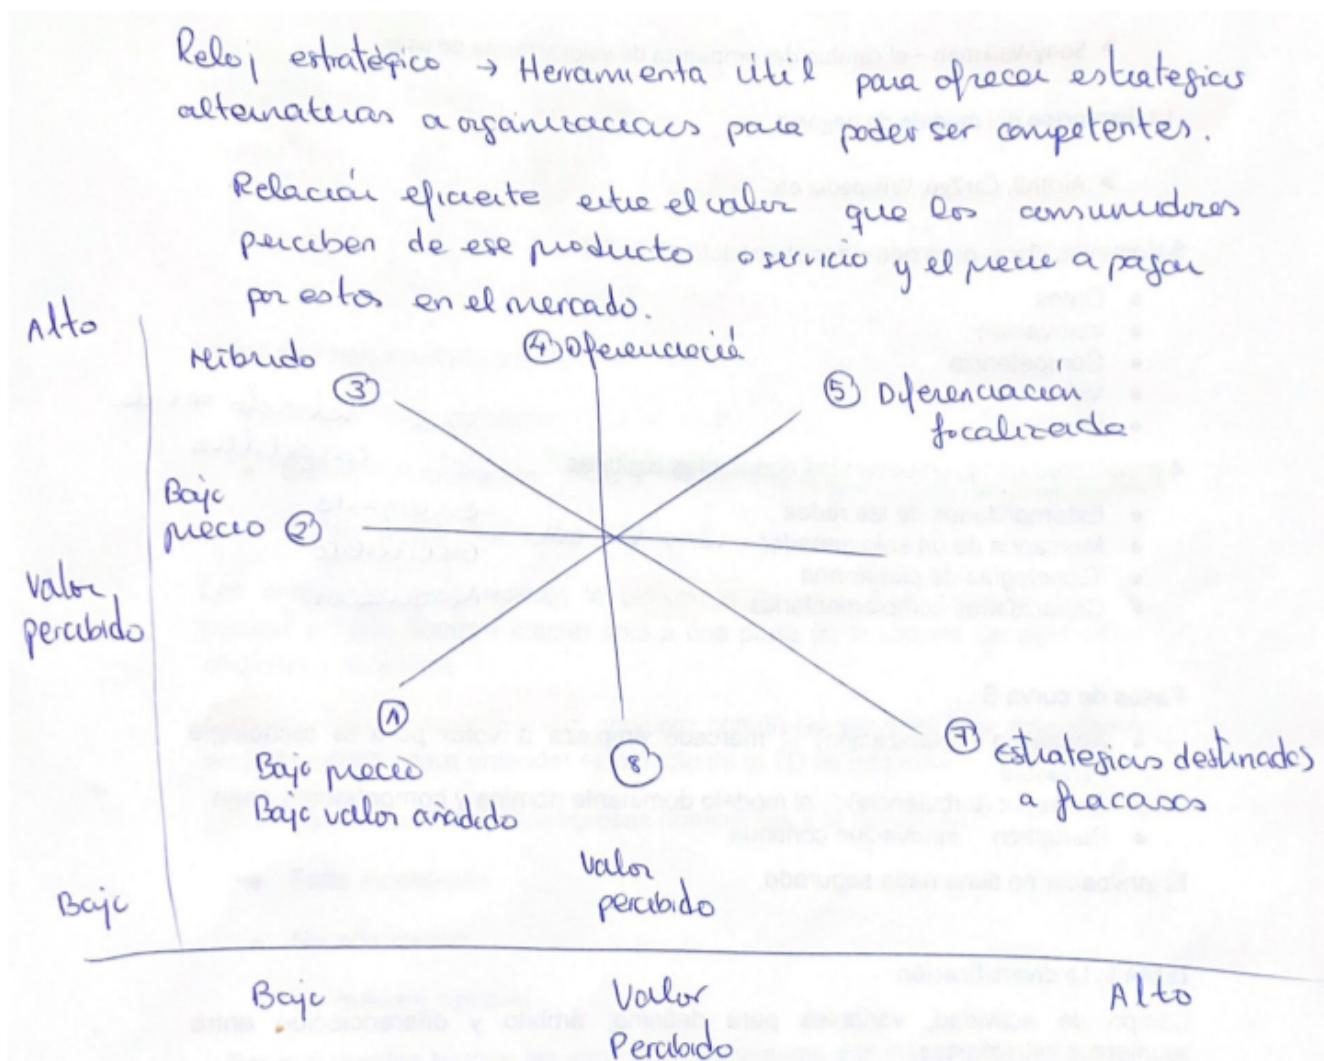 Reloj estratégico → Herramienta útil para ofrecer estrategias
alternativas a organizaciones para poder ser competentes.
Relación eficiente entre el valor que los consumidores
perciben de ese producto o servicio y el precio a pagar
por estos en el mercado.
Alto
Híbrido
③
④ Diferenciació
⑤ Diferenciación
focalizada
Bajo
precio ②
Valor
percibido
①
Bajo precio
Bajo valor añadido
⑧
⑦ estrategias destinadas
a fracasos
Valor
percibido
Bajo
Bajo
Valor
Percibido
Alto